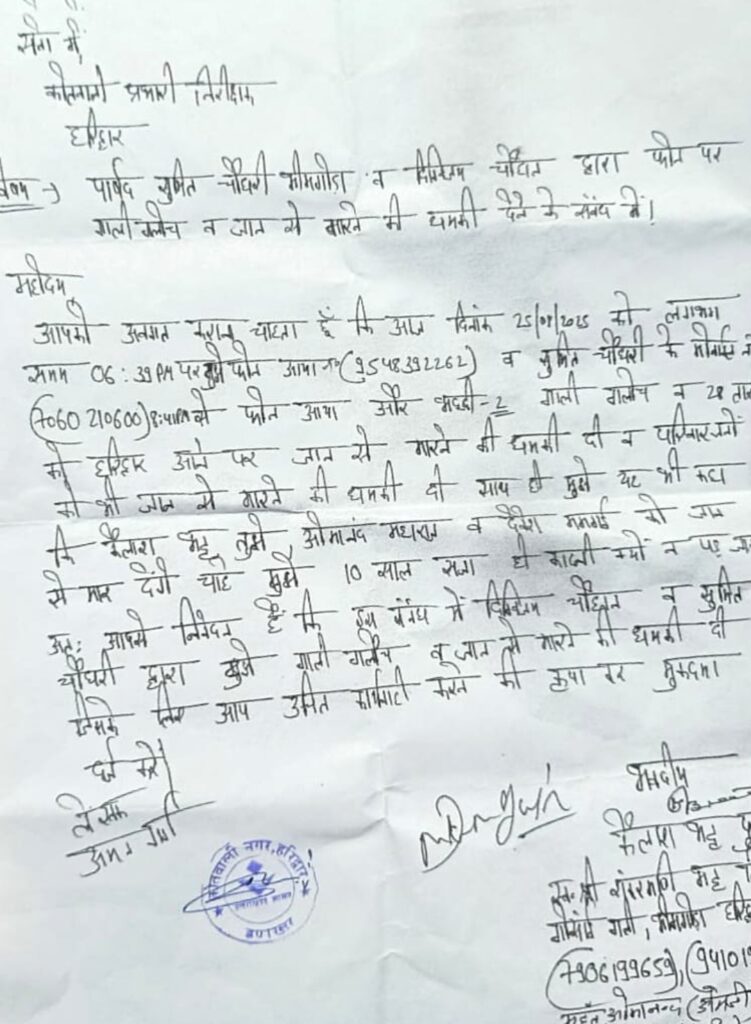 सेवा में,
कोतवाली प्रभारी निरीक्षक
हरिद्वार
विषय -> पार्षद सुमित चौधरी भीमगोडा व विक्रम चौहान द्वारा फोन पर
गाली गलौच व जान से मारने की धमकी देने के संबंध में।
महोदय,
आपको अवगत कराना चाहता हूँ कि आज दिनांक 25/09/2025 को लगभग
समय 06:39 PM पर मुझे फोन आया (9548392262) व सुमित चौधरी के
(7060210600) 8:41PM से फोन आया और भद्दी-2 गाली गलौच व 28
को हरिद्वार आने पर जान से मारने की धमकी दी व परिवारजनों
को भी जान से मारने की धमकी दी साथ ही मुझे यह भी कहा
कि कैलाश भट्ट तुझे ओमानंद महाराज व दैनेश ममगाई को जान
से मार देंगे चाहे मुझे 10 साल सजा ही काटनी क्यों न पड़
अतः आपसे निवेदन है कि इस संबंध में चौहान व सुमित
चौधरी द्वारा मुझे गाली गलौच व जान से मारने की धमकी दी
जिसके लिए आप उचित कार्यवाही करने की कृपा कर मुकदमा
दर्ज करें।
भवदीय
कैलाश भट्ट
स्व. श्री भट्ट
गली, भीमगोडा
(7906199659), (94101
महंत ओमानन्द
कोतवाली नगर, हरिद्वार